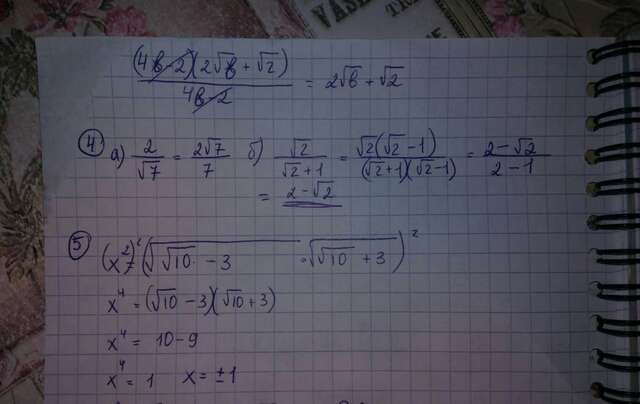 (4b-2)(2√b+√2) / 4b-2 = 2√b+√2
④ а) 2/√7 = 2√7/7 б) √2/(√2+1) = √2(√2-1)/((√2+1)(√2-1)) = (2-√2)/(2-1)
= 2-√2
⑤ (x²)² = (√(√10 -3) · √(√10 +3))²
x⁴ = (√10-3)(√10+3)
x⁴ = 10-9
x⁴ = 1 x = ±1